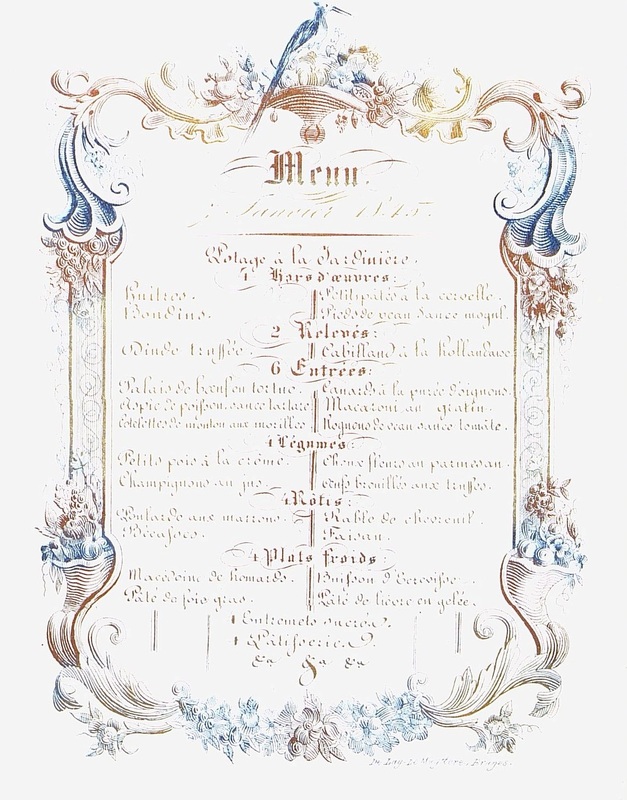 Menu.
Janvier 1845.
Potage à la Jardinière.
4 Hors d'œuvres:
Huitres. Petits pâtés à la cervelle.
Boudins. Pieds de veau sauce
2 Relevés:
Dinde truffée. Cabilland à la hollandaise
6 Entrées:
Palais de bœuf en tortue. Canards à la purée d'oignons.
Aspic de poisson, sauce tartare Macaroni au gratin.
Cotelettes de mouton aux morilles Rognons de veau sauce tomate.
4 Légumes:
Petits pois à la crême. Choux fleurs au parmesan.
Champignons au jus. Œufs brouillés aux truffes.
4 Rôtis:
Poularde aux marrons. Rable de chevreuil.
Bécasses. Faisan.
4 Plats froids
Macédoine de homards. Buisson d'Ecrevisse.
Pâté de foie gras. Pâté de lièvre en gelée.
4 Entremets sucrés.
4 Pâtisseries.
&a &a &a
Bruges.